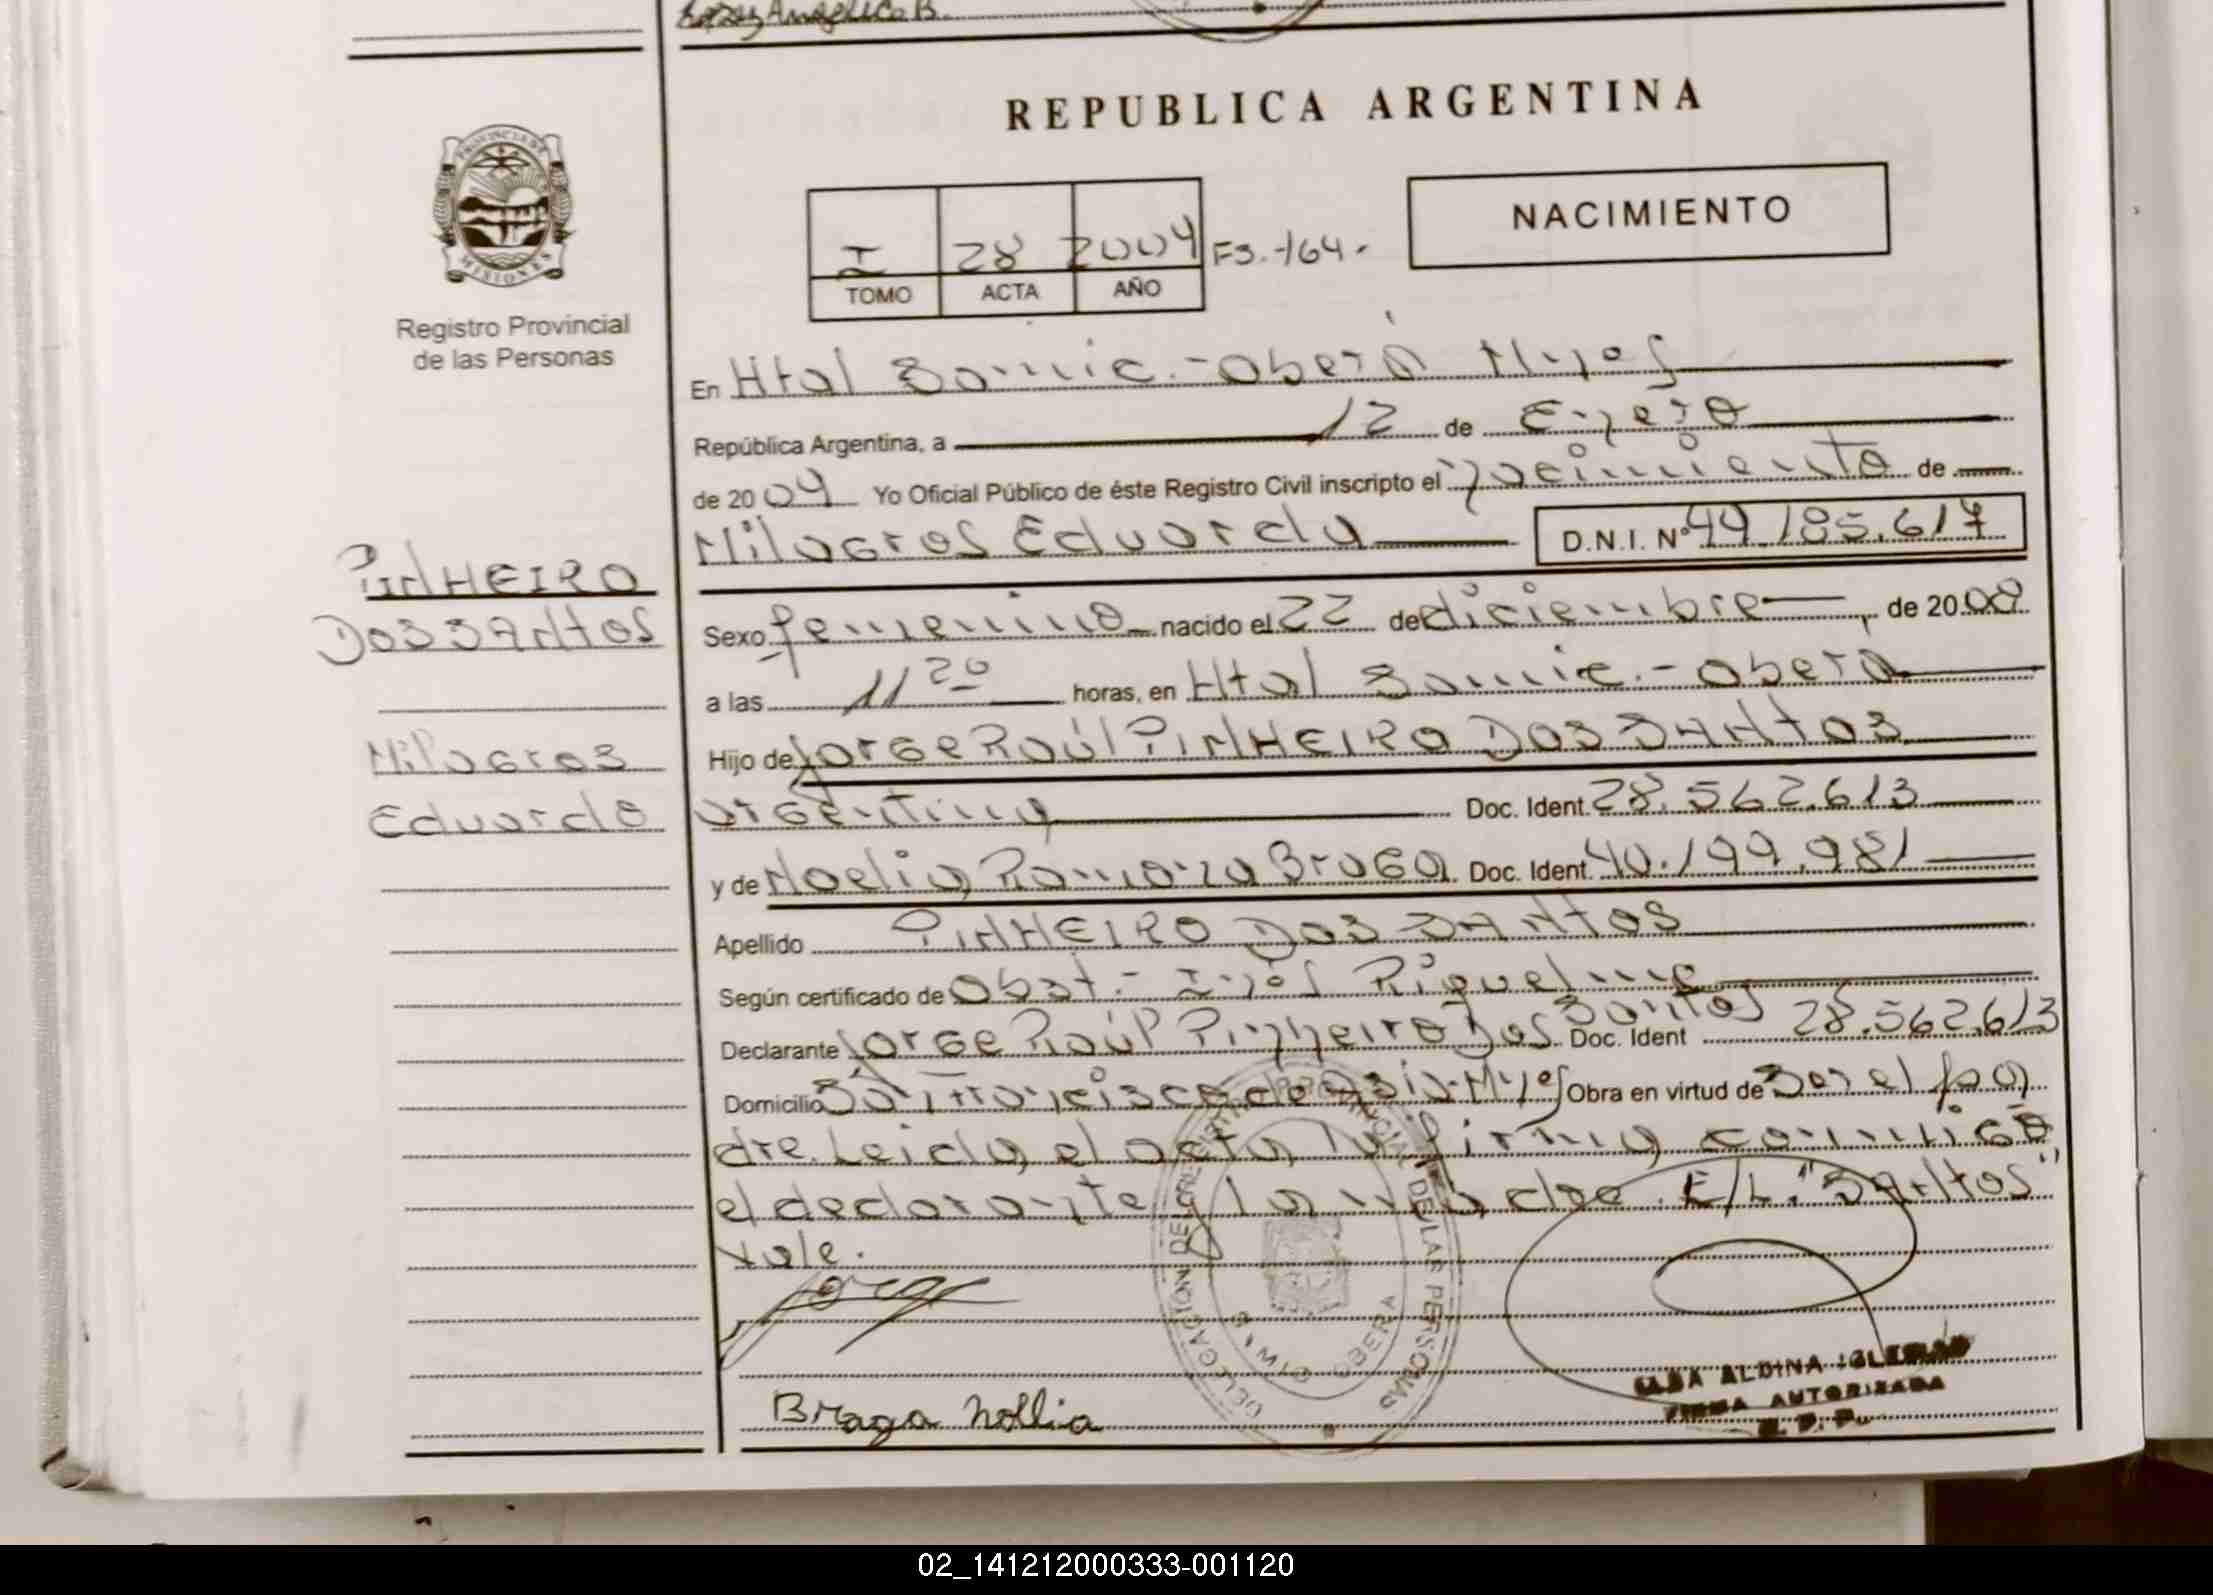 Lopez Angelica B.
REPUBLICA ARGENTINA
PROVINCIA DE
MISIONES
Registro Provincial
de las Personas
I 28 2004 FS.-164.-
TOMO ACTA AÑO
NACIMIENTO
En Htal Samic.-Oberá Mnes
República Argentina, a 12 de Enero
de 2004 Yo Oficial Público de éste Registro Civil inscripto el nacimiento de
Milagros Eduarda D.N.I. Nº 44.185.617
PINHEIRO
DOS SANtOS
Milagros
Eduarda
Sexo femenino nacido el 22 de diciembre, de 20
a las 11 20 horas, en Htal Samic.-Oberá
Hijo de Jorge Raúl PINHEIRO DOS SANtOS
argentino Doc. Ident. 28.562.613
y de Noelia Ramona Braga Doc. Ident. 40.199.981
Apellido PINHEIRO DOS SANtOS
Según certificado de Obst.- Inés Riquelme
Declarante Jorge Raúl Pinheiro Dos Santos Doc. Ident 28.562.613
Domicilio San Francisco de Asis-Mnes Obra en virtud de ser el pa
dre. Leida el acta la firma conmigo
el declarante y la madre. E/L. "SANtOS"
Vale.
Jorge
Braga Noelia
DELEGACIÓN DE REGISTRO PROVINCIAL DE LAS PERSONAS
SAMIC OBERA
ALBA ALDINA IGLESIAS
FIRMA AUTORIZADA
R. P. P.
02_141212000333-001120